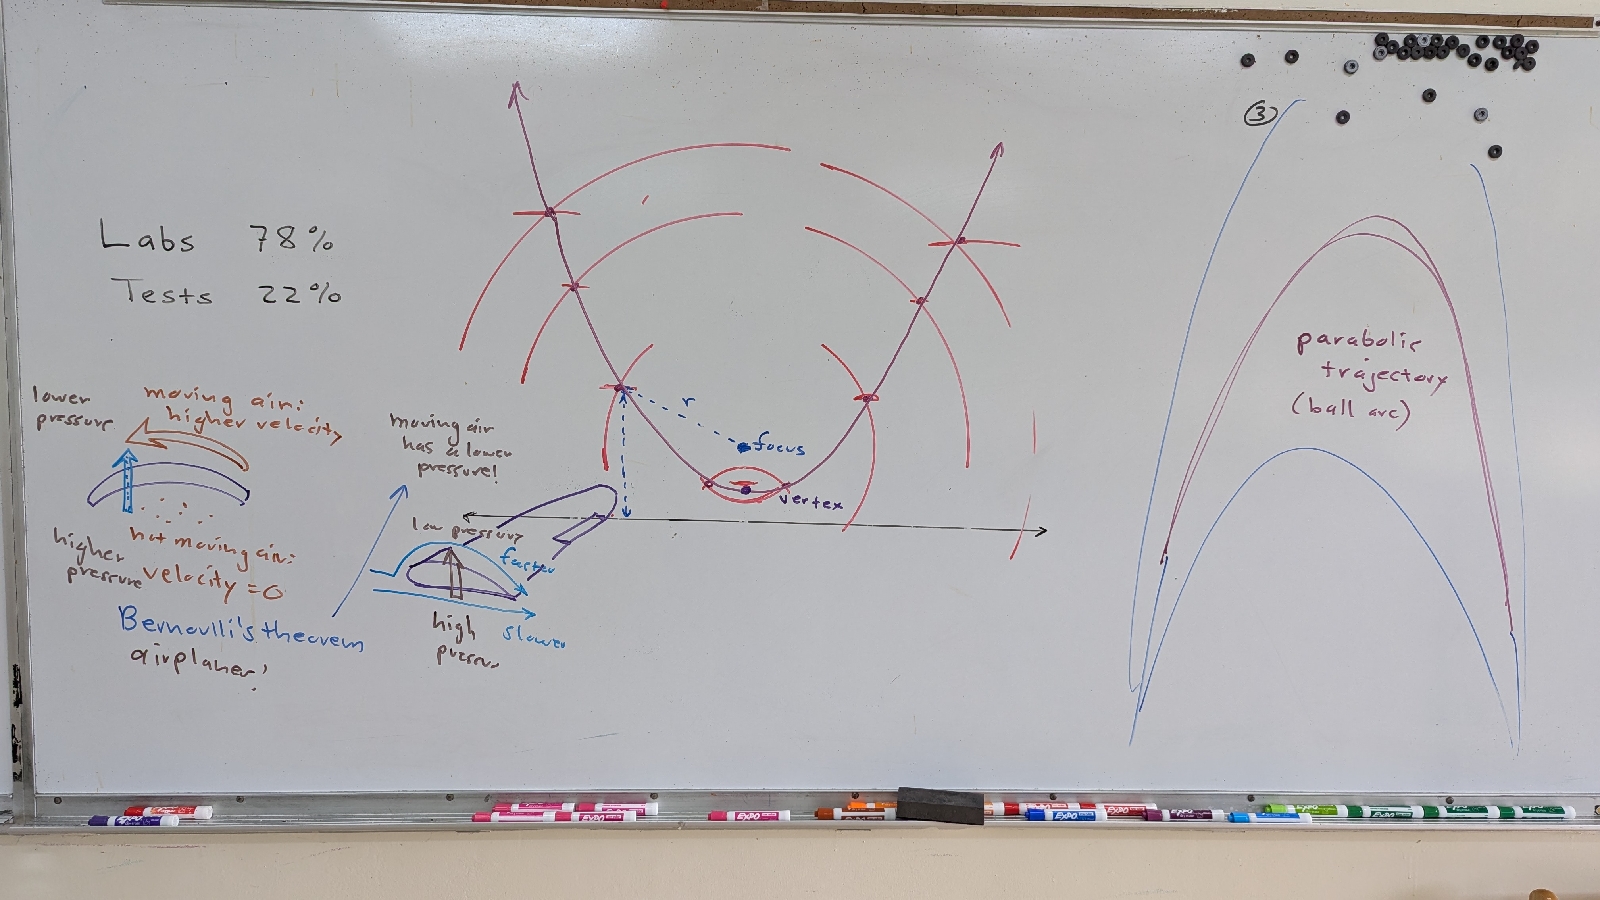 3
Labs 78%
Tests 22%
lower
pressure
moving air:
higher velocity
higher
pressure
not moving air:
velocity = 0
Bernoulli's theorem
airplanes!
moving air
has a lower
pressure!
low pressure
faster
slower
high
pressure
r
focus
vertex
parabolic
trajectory
(ball arc)
EXPO
EXPO
EXPO
EXPO